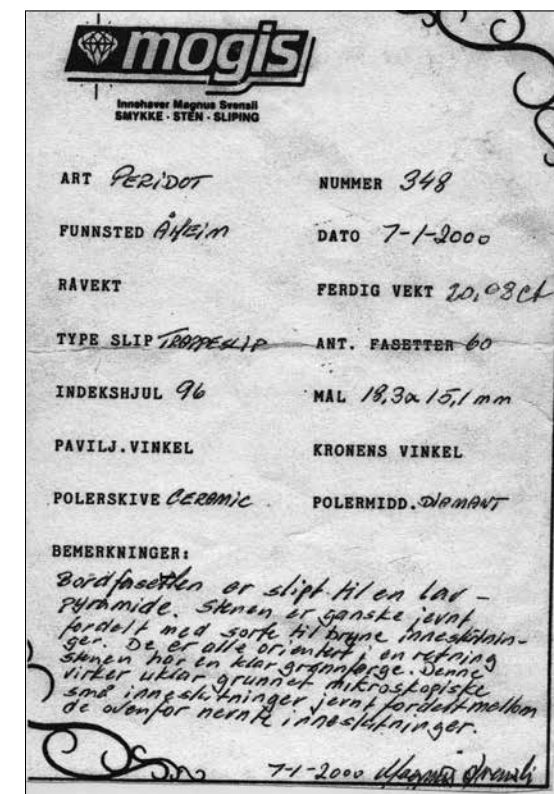 mogis
Innehaver Magnus Svensli
SMYKKE - STEN - SLIPING
ART PERIDOT
NUMMER 348
FUNNSTED ÅHEIM
DATO 7-1-2000
RÅVEKT
FERDIG VEKT 20,08 ct
TYPE SLIP TRAPPESLIP
ANT. FASETTER 60
INDEKSHJUL 96
MÅL 18,3 x 15,1 mm
PAVILJ.VINKEL
KRONENS VINKEL
POLERSKIVE CERAMIC
POLERMIDD. DIAMANT
BEMERKNINGER:
Bordfasetten er slipt til en lav -
pyramide. Stenen er ganske jevnt
fordelt med sorte til brune inneslutnin-
ger. De er alle orientert i en retning
stenen har en klar grønnfarge. Denne
virker uklar grunnet mikroskopiske
små inneslutninger jevnt fordelt mellom
de ovenfor nevnte inneslutninger.
7-1-2000 Magnus Svensli